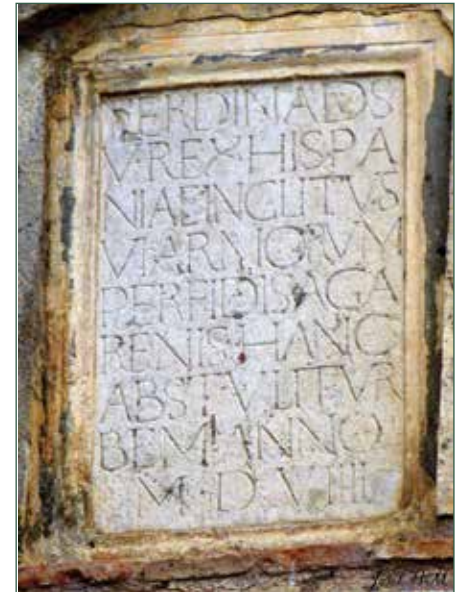 FERDINADS
V·REX·HISPA
NIAE INCLITVS
VI ARMORVM
PERFIDIS AGA
RENIS·HANC
ABSTVLIT VR
BEM ANNO
M·D·VIIII